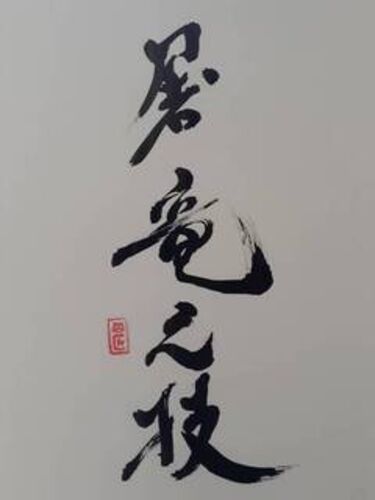 屠竜之技